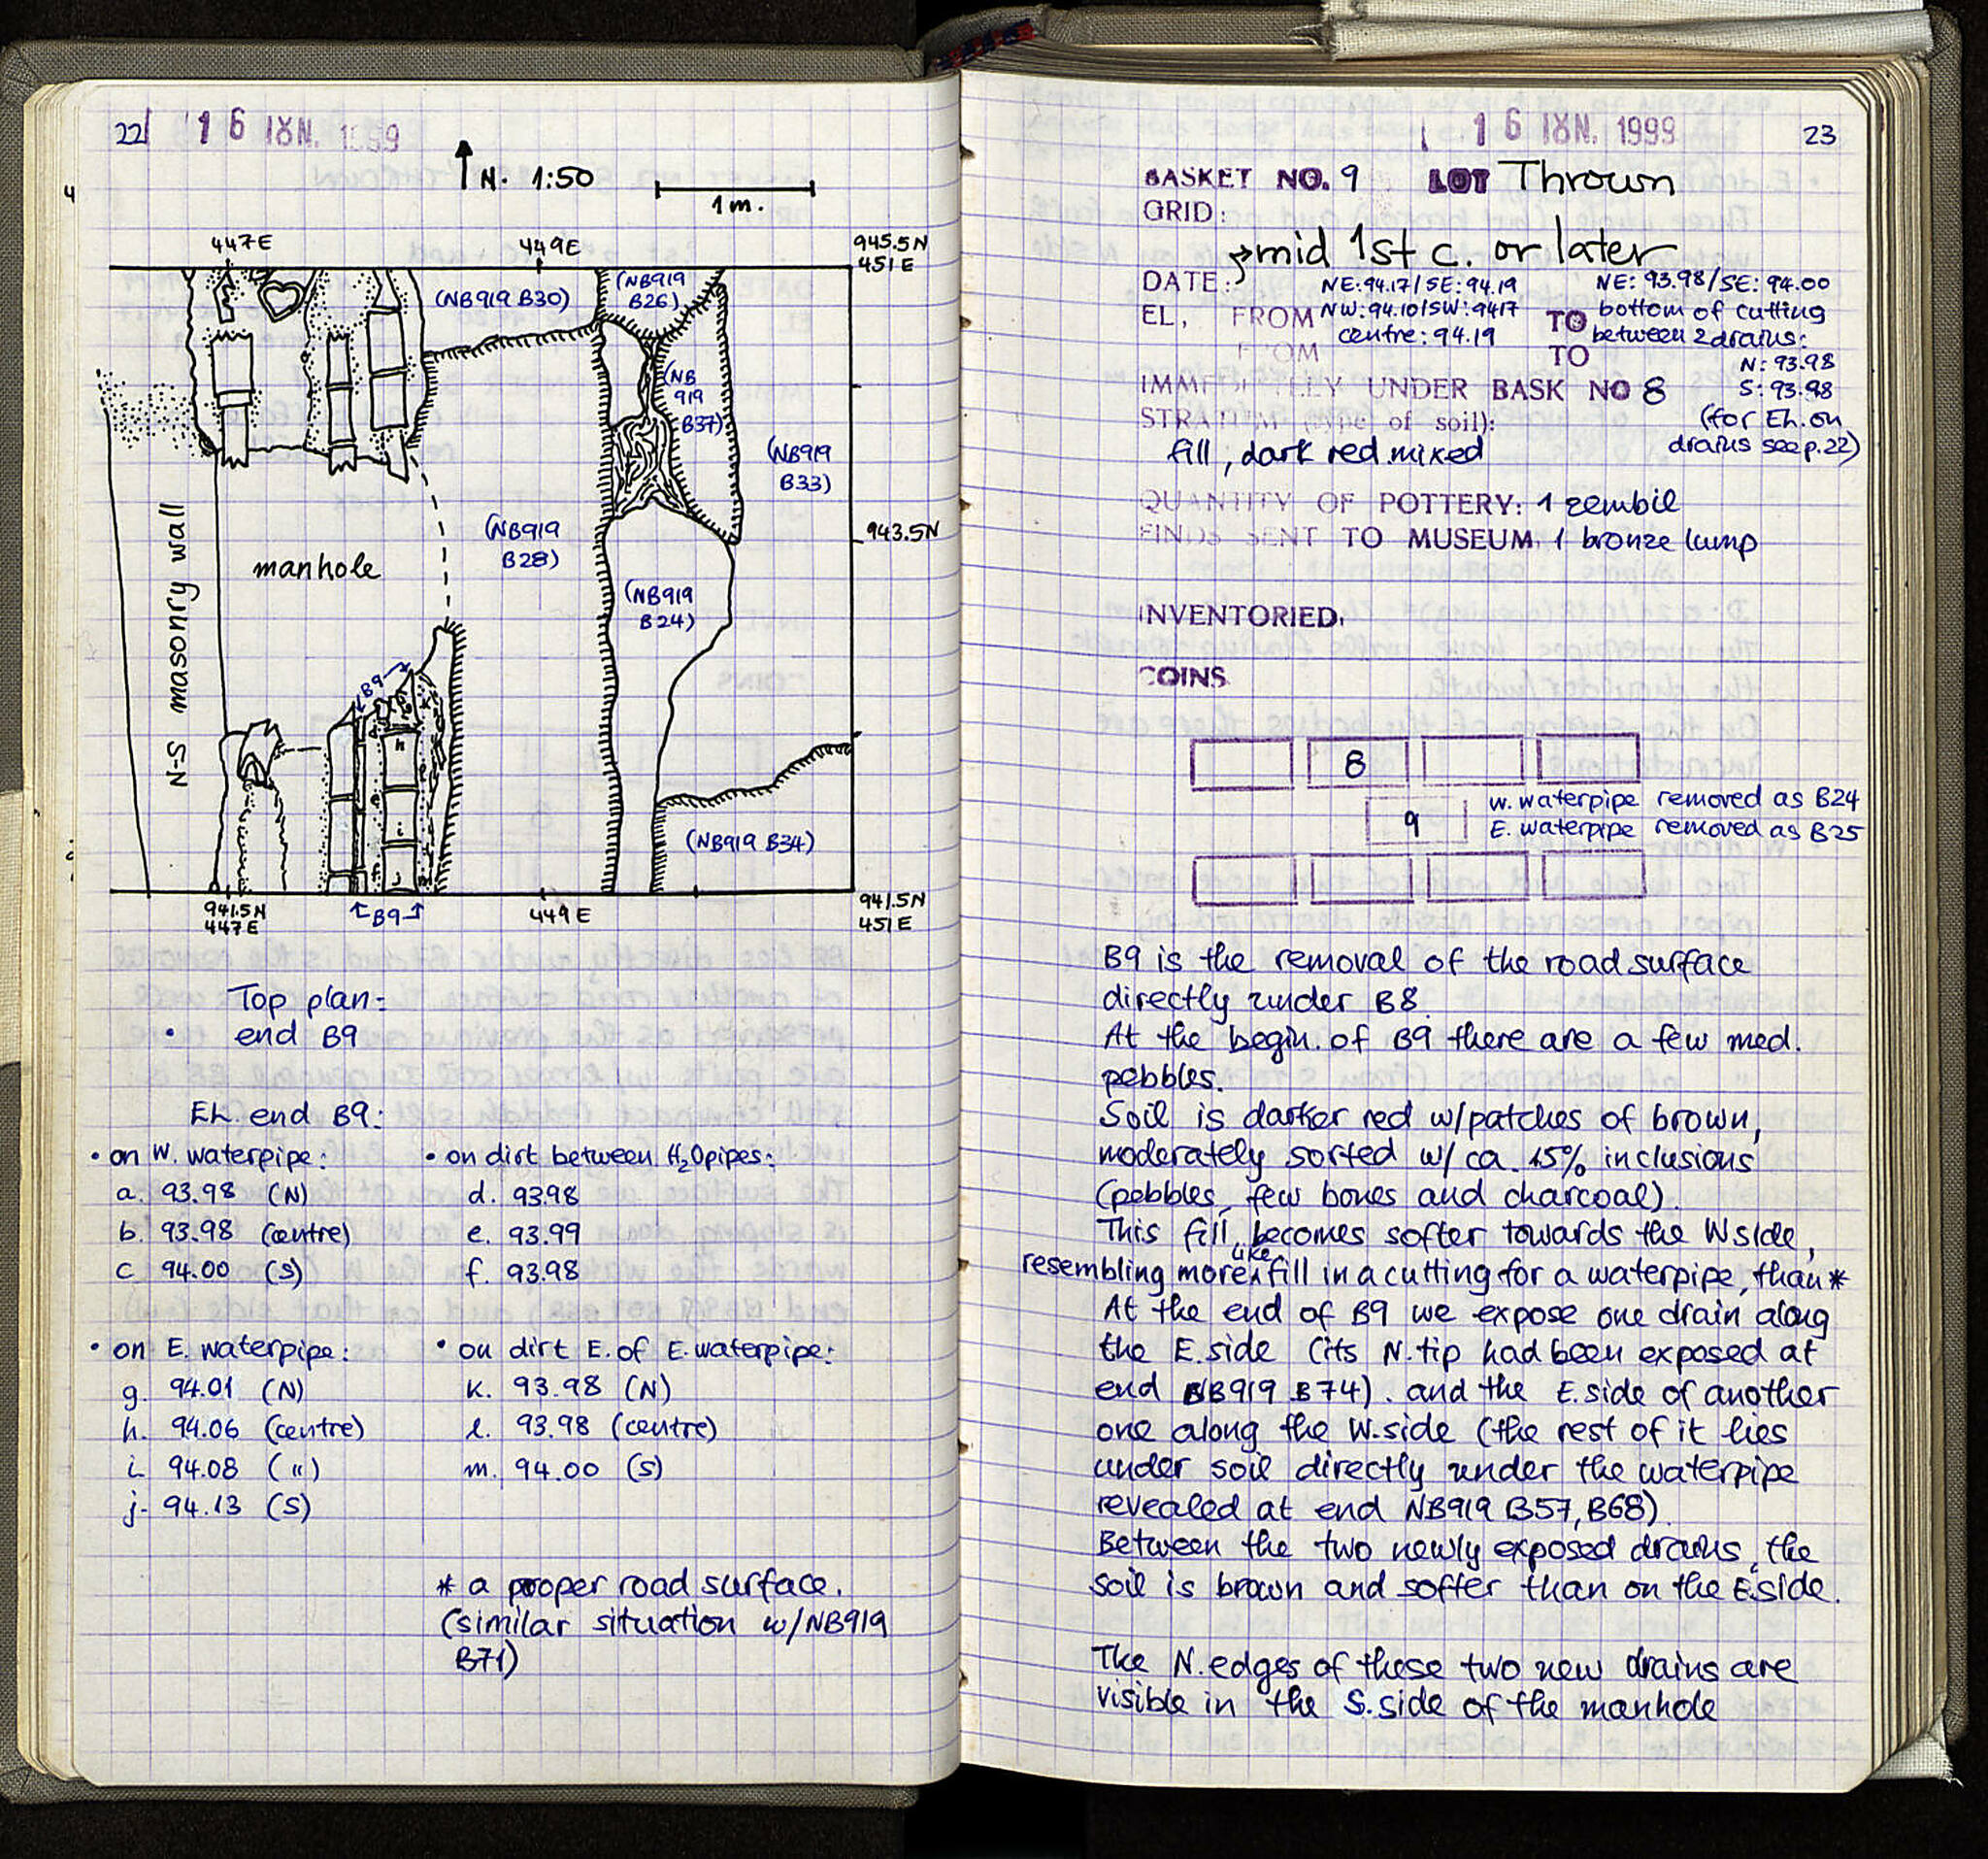 22
16 ΙΟΥΝ. 1999
N. 1:50
1 m.
447E
449E
945.5N
451E
(NB919 B30)
(NB919
B26)
(NB
919
B37)
(NB919
B33)
(NB919
B28)
943.5N
N-S masonry wall
manhole
(NB919
B24)
B9
(NB919 B34)
941.5N
447E
B9
449E
941.5N
451E
Top plan:
• end B9
EL. end B9:
• on W. waterpipe:
a. 93.98 (N)
b. 93.98 (centre)
c. 94.00 (S)
• on dirt between H2Opipes:
d. 93.98
e. 93.99
f. 93.98
• on E. waterpipe:
g. 94.01 (N)
h. 94.06 (centre)
i. 94.08 (")
j. 94.13 (S)
• on dirt E. of E. waterpipe:
k. 93.98 (N)
l. 93.98 (centre)
m. 94.00 (S)
* a proper road surface.
(similar situation w/NB919
B71)
16 ΙΟΥΝ. 1999
23
BASKET NO. 9 LOT Thrown
GRID:
mid 1st c. or later
DATE:
EL, FROM
FROM
NE: 94.17/SE: 94.19
NW: 94.10/SW: 9417
centre: 94.19
TO
TO
NE: 93.98/SE: 94.00
bottom of cutting
between 2 drains:
N: 93.98
S: 93.98
(for El. on
drains see p.22)
IMMEDIATELY UNDER BASK NO 8
STRATUM (type of soil):
fill, dark red mixed
QUANTITY OF POTTERY: 1 zembil
FINDS SENT TO MUSEUM: 1 bronze lump
INVENTORIED:
COINS
8
9
W. waterpipe removed as B24
E. waterpipe removed as B25
B9 is the removal of the road surface
directly under B8.
At the begin. of B9 there are a few med.
pebbles.
Soil is darker red w/patches of brown,
moderately sorted w/ ca. 15% inclusions
(pebbles, few bones and charcoal).
This fill becomes softer towards the W side,
resembling more like fill in a cutting for a waterpipe, than *
At the end of B9 we expose one drain along
the E. side (its N. tip had been exposed at
end NB919 B74). and the E. side of another
one along the W. side (the rest of it lies
under soil directly under the waterpipe
revealed at end NB919 B57, B68).
Between the two newly exposed drains, the
soil is brown and softer than on the E. side.
The N. edges of these two new drains are
visible in the S. side of the manhole